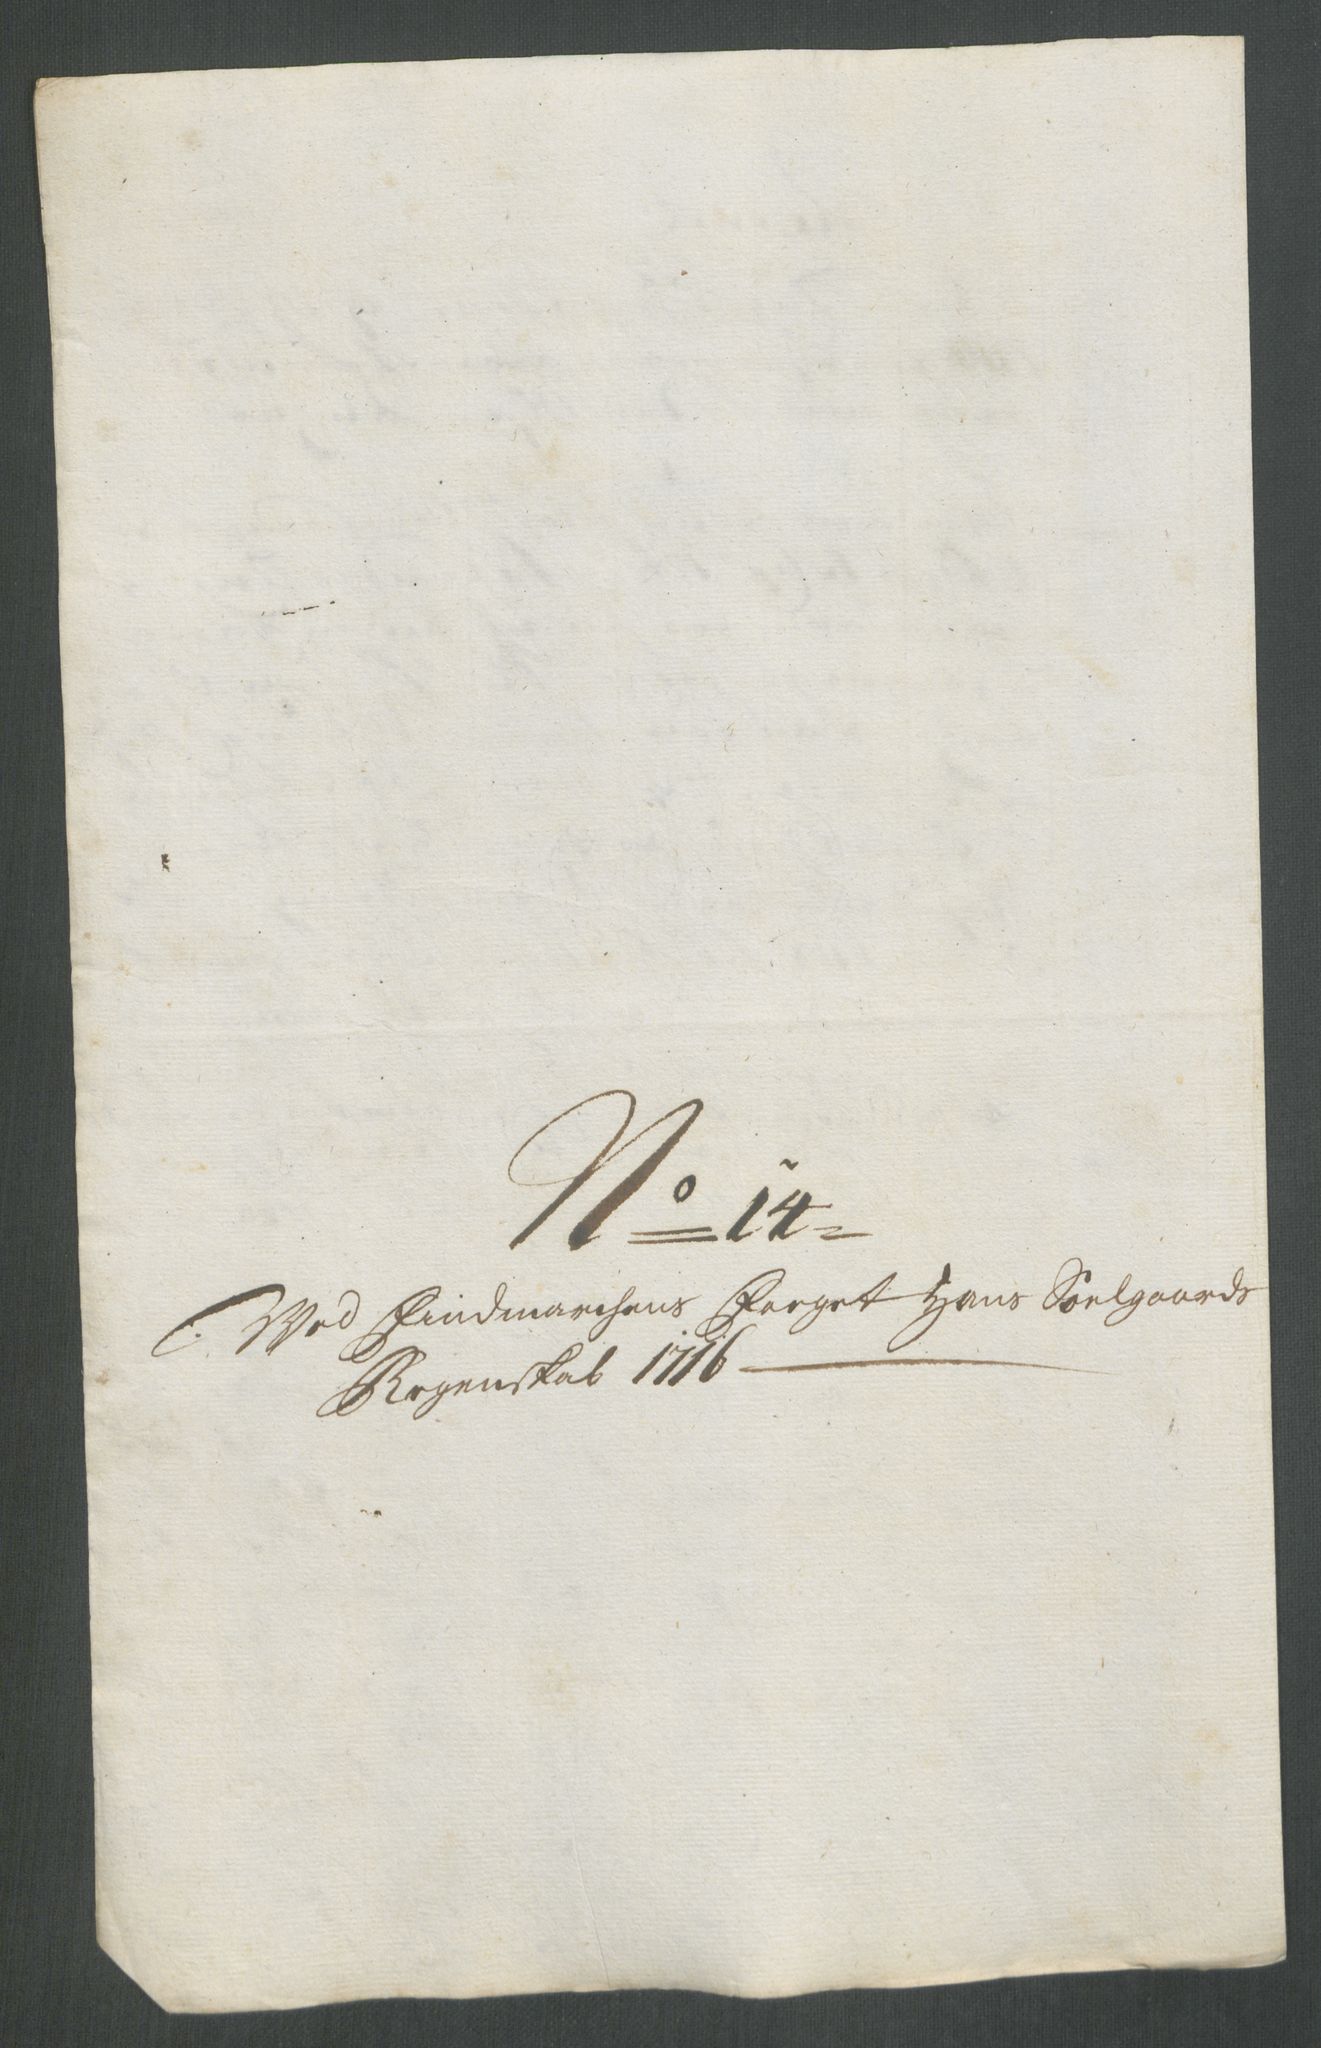 No 14
Ved Findmarchens Foeget Hans Soelgaards
Regenskab 1716